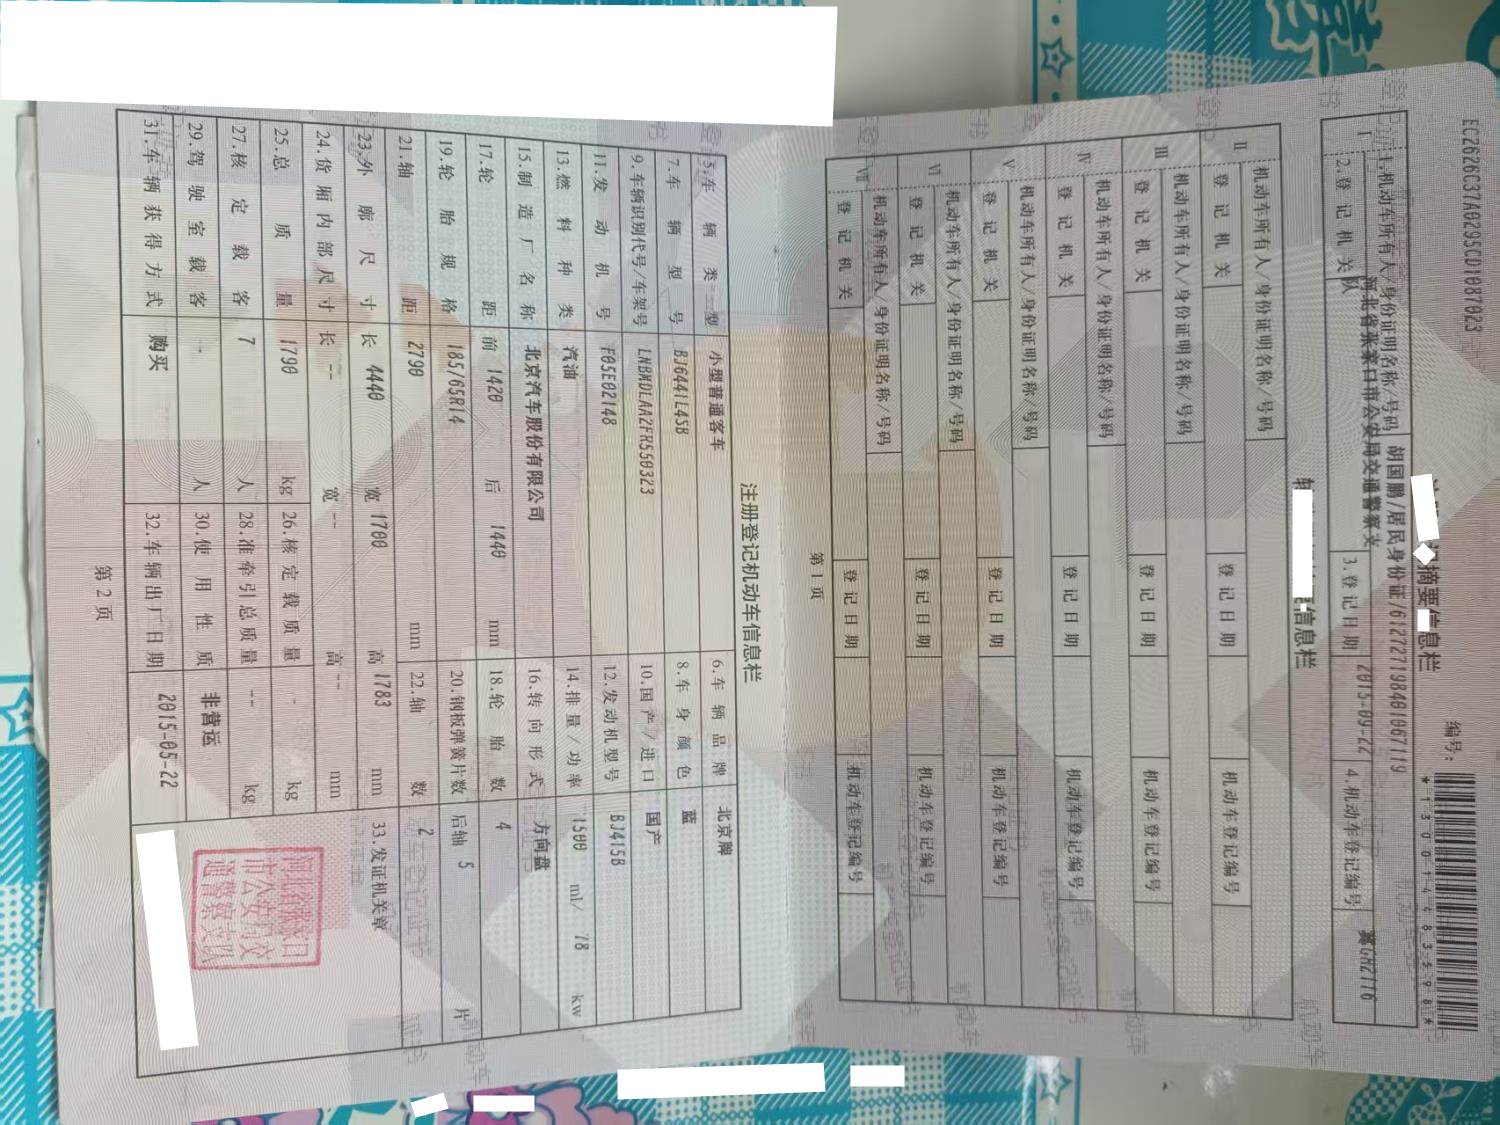 EC2626C37A0295CD1087023
编号：
*130014483598*
摘要信息栏
Ⅰ 1.机动车所有人/身份证明名称/号码 胡国鹏/居民身份证/612727198401067119
2.登记机关 河北省张家口市公安局交通警察支队 3.登记日期 2015-09-22 4.机动车登记编号 冀GH2116
信息栏
Ⅱ 机动车所有人/身份证明名称/号码
登记机关 登记日期 机动车登记编号
Ⅲ 机动车所有人/身份证明名称/号码
登记机关 登记日期 机动车登记编号
Ⅳ 机动车所有人/身份证明名称/号码
登记机关 登记日期 机动车登记编号
Ⅴ 机动车所有人/身份证明名称/号码
登记机关 登记日期 机动车登记编号
Ⅵ 机动车所有人/身份证明名称/号码
登记机关 登记日期 机动车登记编号
Ⅶ 机动车所有人/身份证明名称/号码
登记机关 登记日期 机动车登记编号
第1页
注册登记机动车信息栏
5.车辆类型 小型普通客车 6.车辆品牌 北京牌
7.车辆型号 BJ6441L45B 8.车身颜色 蓝
9.车辆识别代号/车架号 LNBMDLAA2FR550323 10.国产/进口 国产
11.发动机号 F05E02148 12.发动机型号 BJ415B
13.燃料种类 汽油 14.排量/功率 1500 ml/ 78 kw
15.制造厂名称 北京汽车股份有限公司 16.转向形式 方向盘
17.轮距 前 1420 后 1440 mm 18.轮胎数 4
19.轮胎规格 185/65R14 20.钢板弹簧片数 后轴 5 片
21.轴距 2790 mm 22.轴数 2
23.外廓尺寸 长 4440 宽 1700 高 1783 mm 33.发证机关章
24.货厢内部尺寸 长 -- 宽 -- 高 -- mm
25.总质量 1790 kg 26.核定载质量 - kg
27.核定载客 7 人 28.准牵引总质量 -- kg
29.驾驶室载客 - 人 30.使用性质 非营运
31.车辆获得方式 购买 32.车辆出厂日期 2015-05-22
河北省张家口
市公安局交
通警察支队
第2页